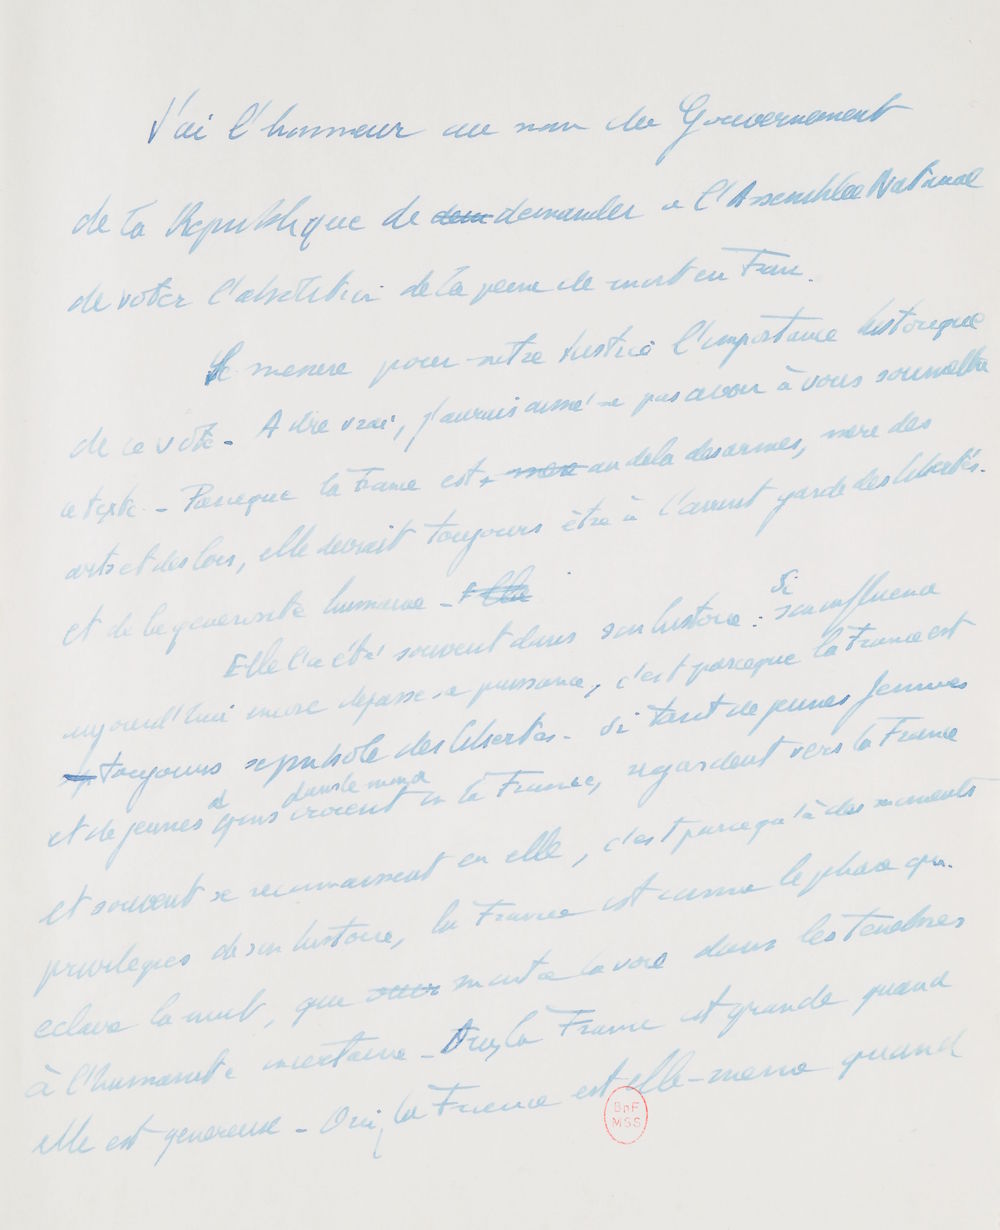 J'ai l'honneur au nom du Gouvernement
de la Republique de dem demander a l'Assemblée National
de voter l'abolition de la peine de mort en Fran.
Je mesure pour notre Justice l'importance historique
de ce vote - A dire vrai, j'aurais aimé ne pas avoir à vous soumettre
ce texte - Parceque la France est, mere au dela des armes, mere des
arts et des lois, elle devrait toujours être à l'avant garde des libertés.
et de la generosité humaine - Elle
Elle l'a été souvent dans son histoire : Si son influence
aujourd'hui encore depasse sa puissance, c'est parceque la France est
toujours symbole des libertés - Si tant de jeunes femmes
et de jeunes d gens dans le monde croient en la France, regardent vers la France
et souvent se reconnaissent en elle, c'est parcequ'à des moments
privilegiés de son histoire, la France est comme le phare qui
eclaire la nuit, que montre la voie dans les tenebres
à l'humanité incertaine - Oui, la France est grande quand
elle est genereuse - Oui, la France est elle-meme quand
BnF
MSS